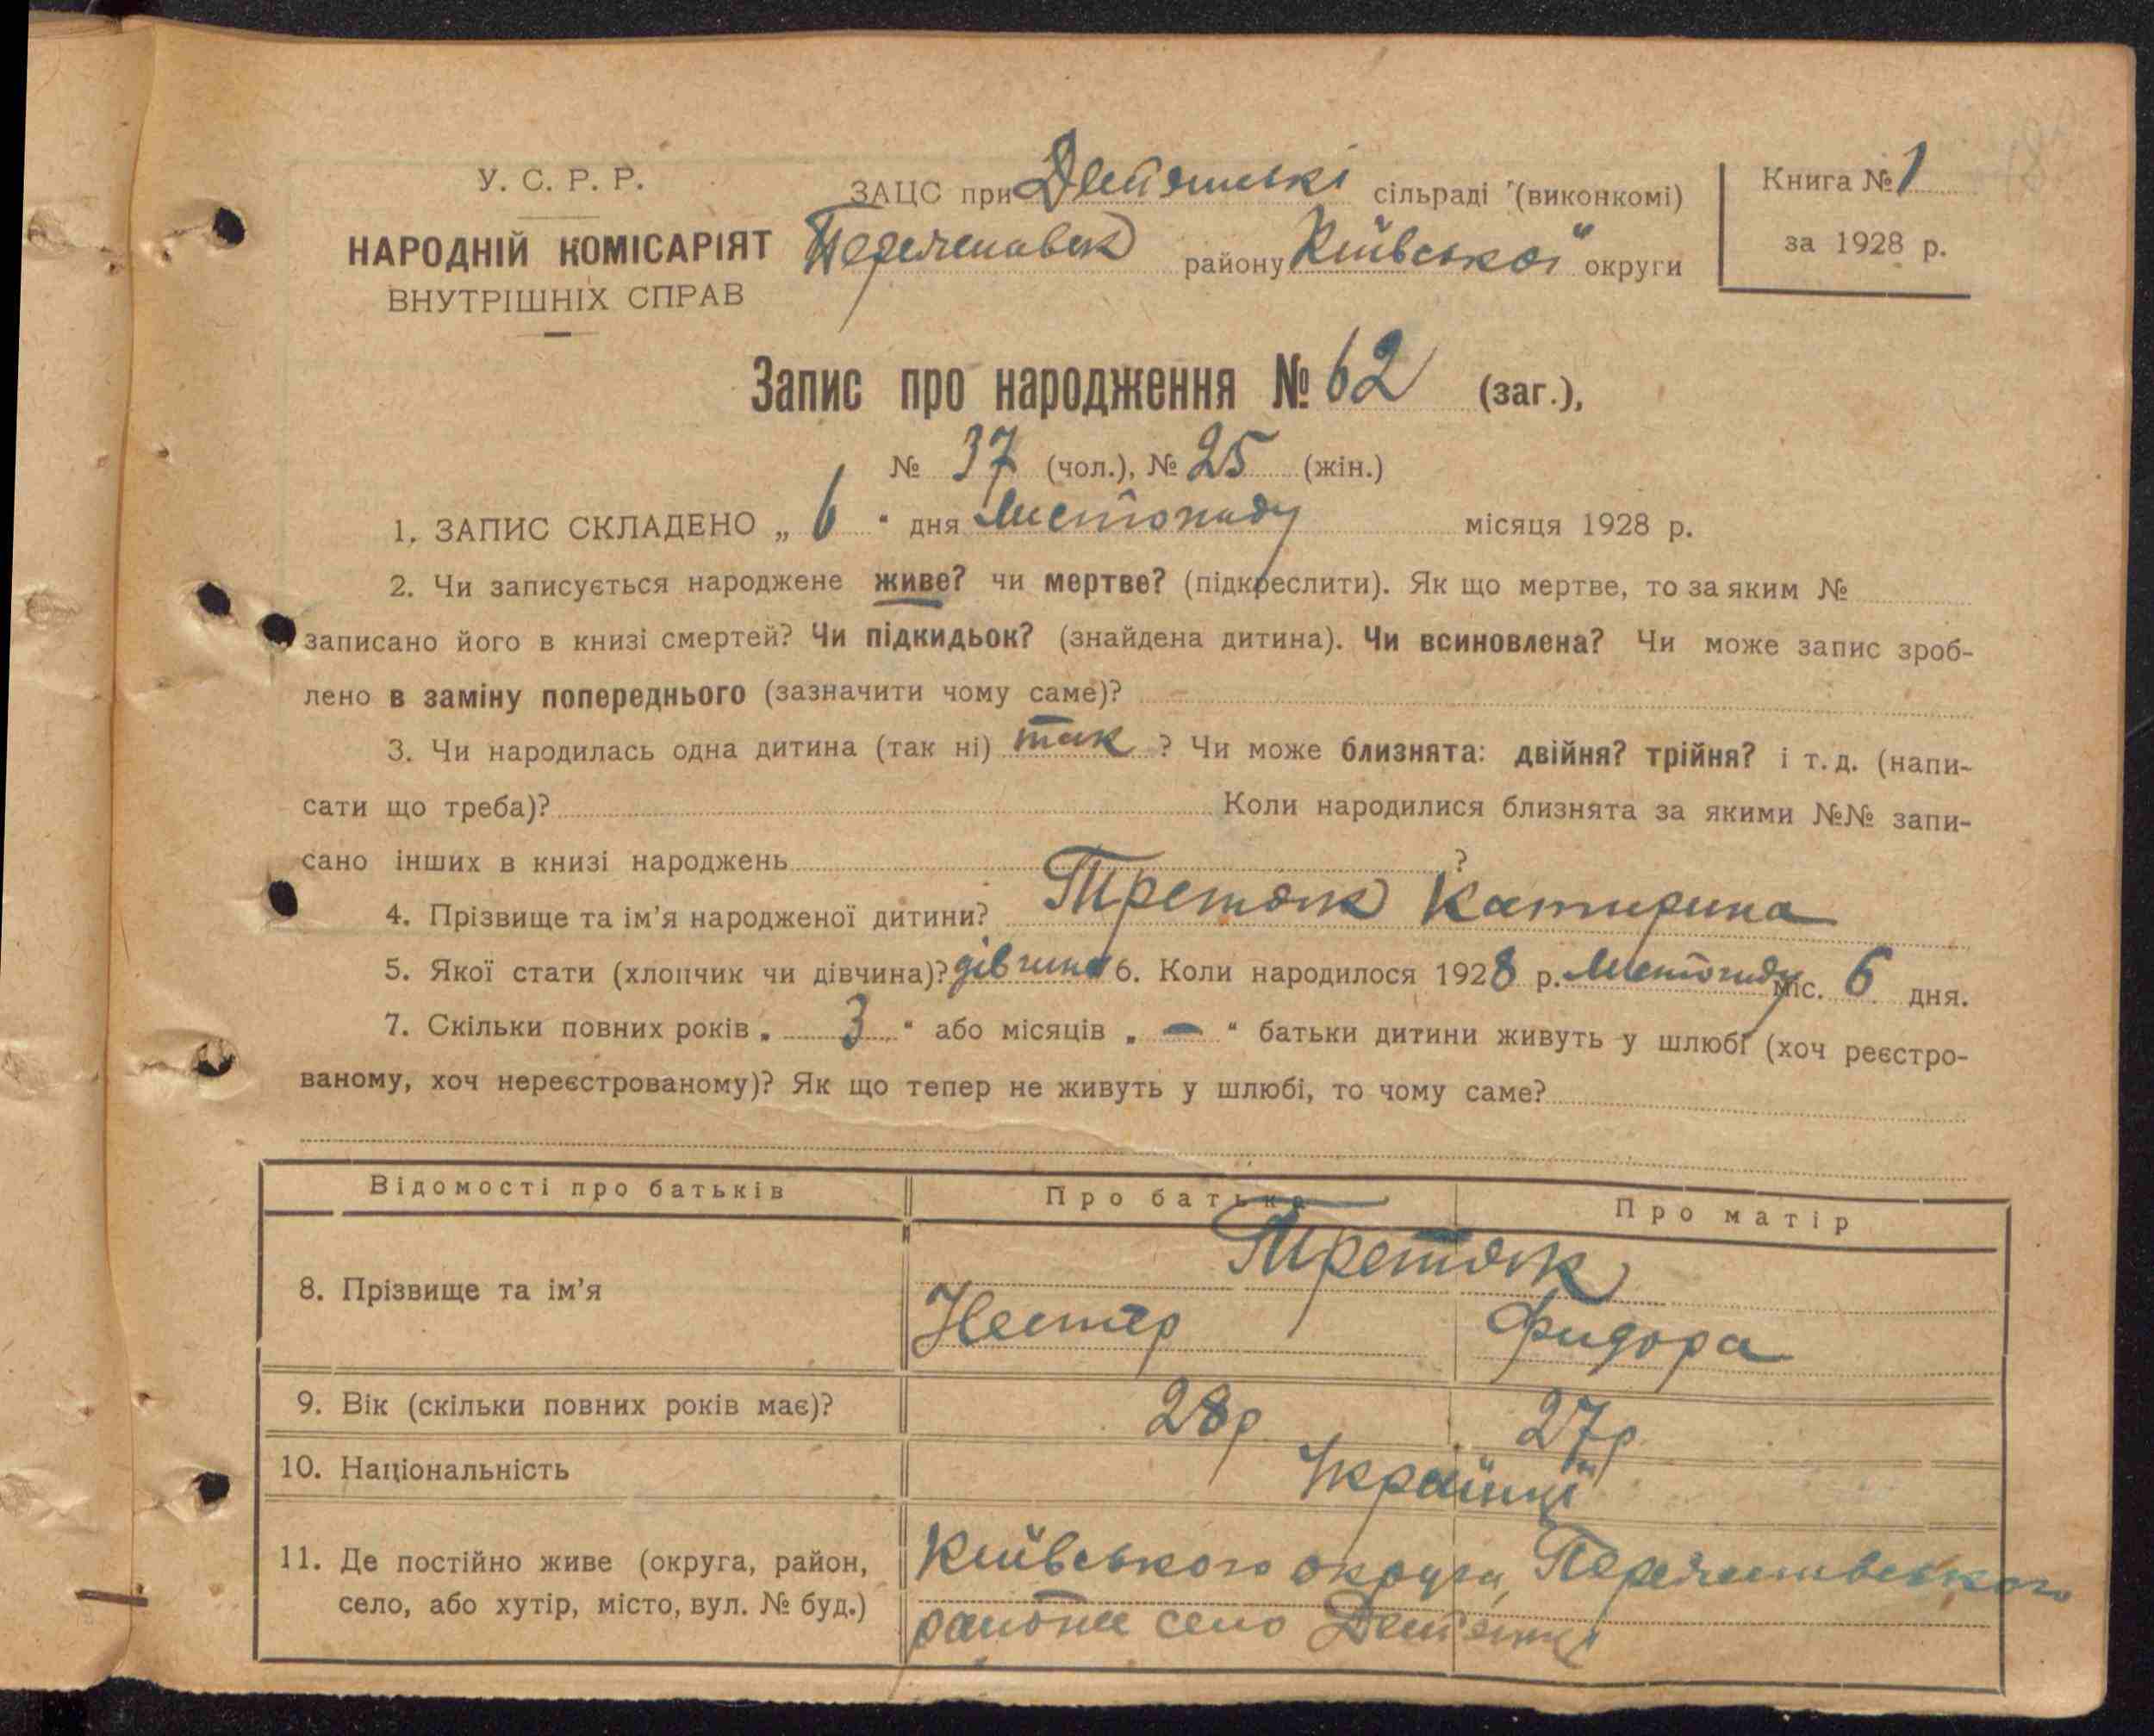 У. С. Р. Р.
НАРОДНІЙ КОМІСАРІЯТ
ВНУТРІШНІХ СПРАВ
ЗАЦС при сільраді (виконкомі)
району Київської округи
Книга № 1
за 1928 р.
Запис про народження № 62 (заг.),
№ 37 (чол.), № 25 (жін.)
1. ЗАПИС СКЛАДЕНО „ 6 " дня Листопаду місяця 1928 р.
2. Чи записується народжене живе? чи мертве? (підкреслити). Як що мертве, то за яким №
записано його в книзі смертей? Чи підкидьок? (знайдена дитина). Чи всиновлена? Чи може запис зроб-
лено в заміну попереднього (зазначити чому саме)?
3. Чи народилась одна дитина (так ні) так ? Чи може близнята: двійня? трійня? і т. д. (напи-
сати що треба)? Коли народилися близнята за якими №№ запи-
сано інших в книзі народжень ?
4. Прізвище та ім'я народженої дитини? Третяк Катирина
5. Якої стати (хлопчик чи дівчина)? дівчина 6. Коли народилося 1928 р. Листопаду міс. 6 дня.
7. Скільки повних років „ 3 " або місяців „ — " батьки дитини живуть у шлюбі (хоч реєстро-
ваному, хоч нереєстрованому)? Як що тепер не живуть у шлюбі, то чому саме?
Відомості про батьків Про батька Про матір
8. Прізвище та ім'я Третяк
Нестер Фидора
9. Вік (скільки повних років має)? 28 р 27 р
10. Національність Українці
11. Де постійно живе (округа, район, Київського округа,
село, або хутір, місто, вул. № буд.) району село